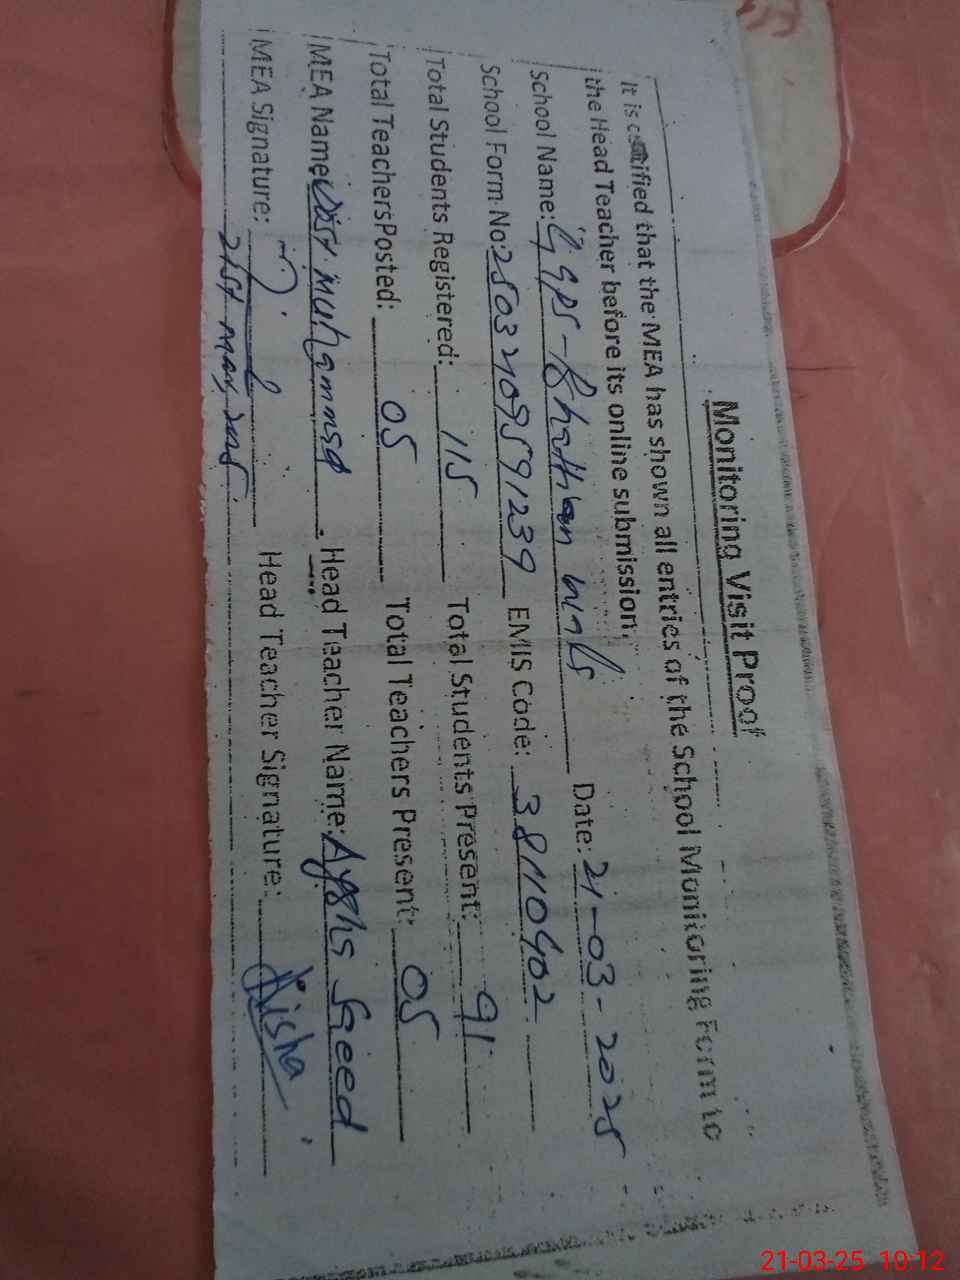 Monitoring Visit Proof
It is certified that the MEA has shown all entries of the School Monitoring Form to
the Head Teacher before its online submission.
School Name: GGPS - Bhattian Date: 21-03-2025
School Form No: 25032109591239 EMIS Code: 38110402
Total Students Registered: 115 Total Students Present: 91
Total Teachers Posted: 05 Total Teachers Present: 05
MEA Name: Muhammad Head Teacher Name: Saeed
MEA Signature: Head Teacher Signature: Aisha
21st mar, 2025
21-03-25 10:12